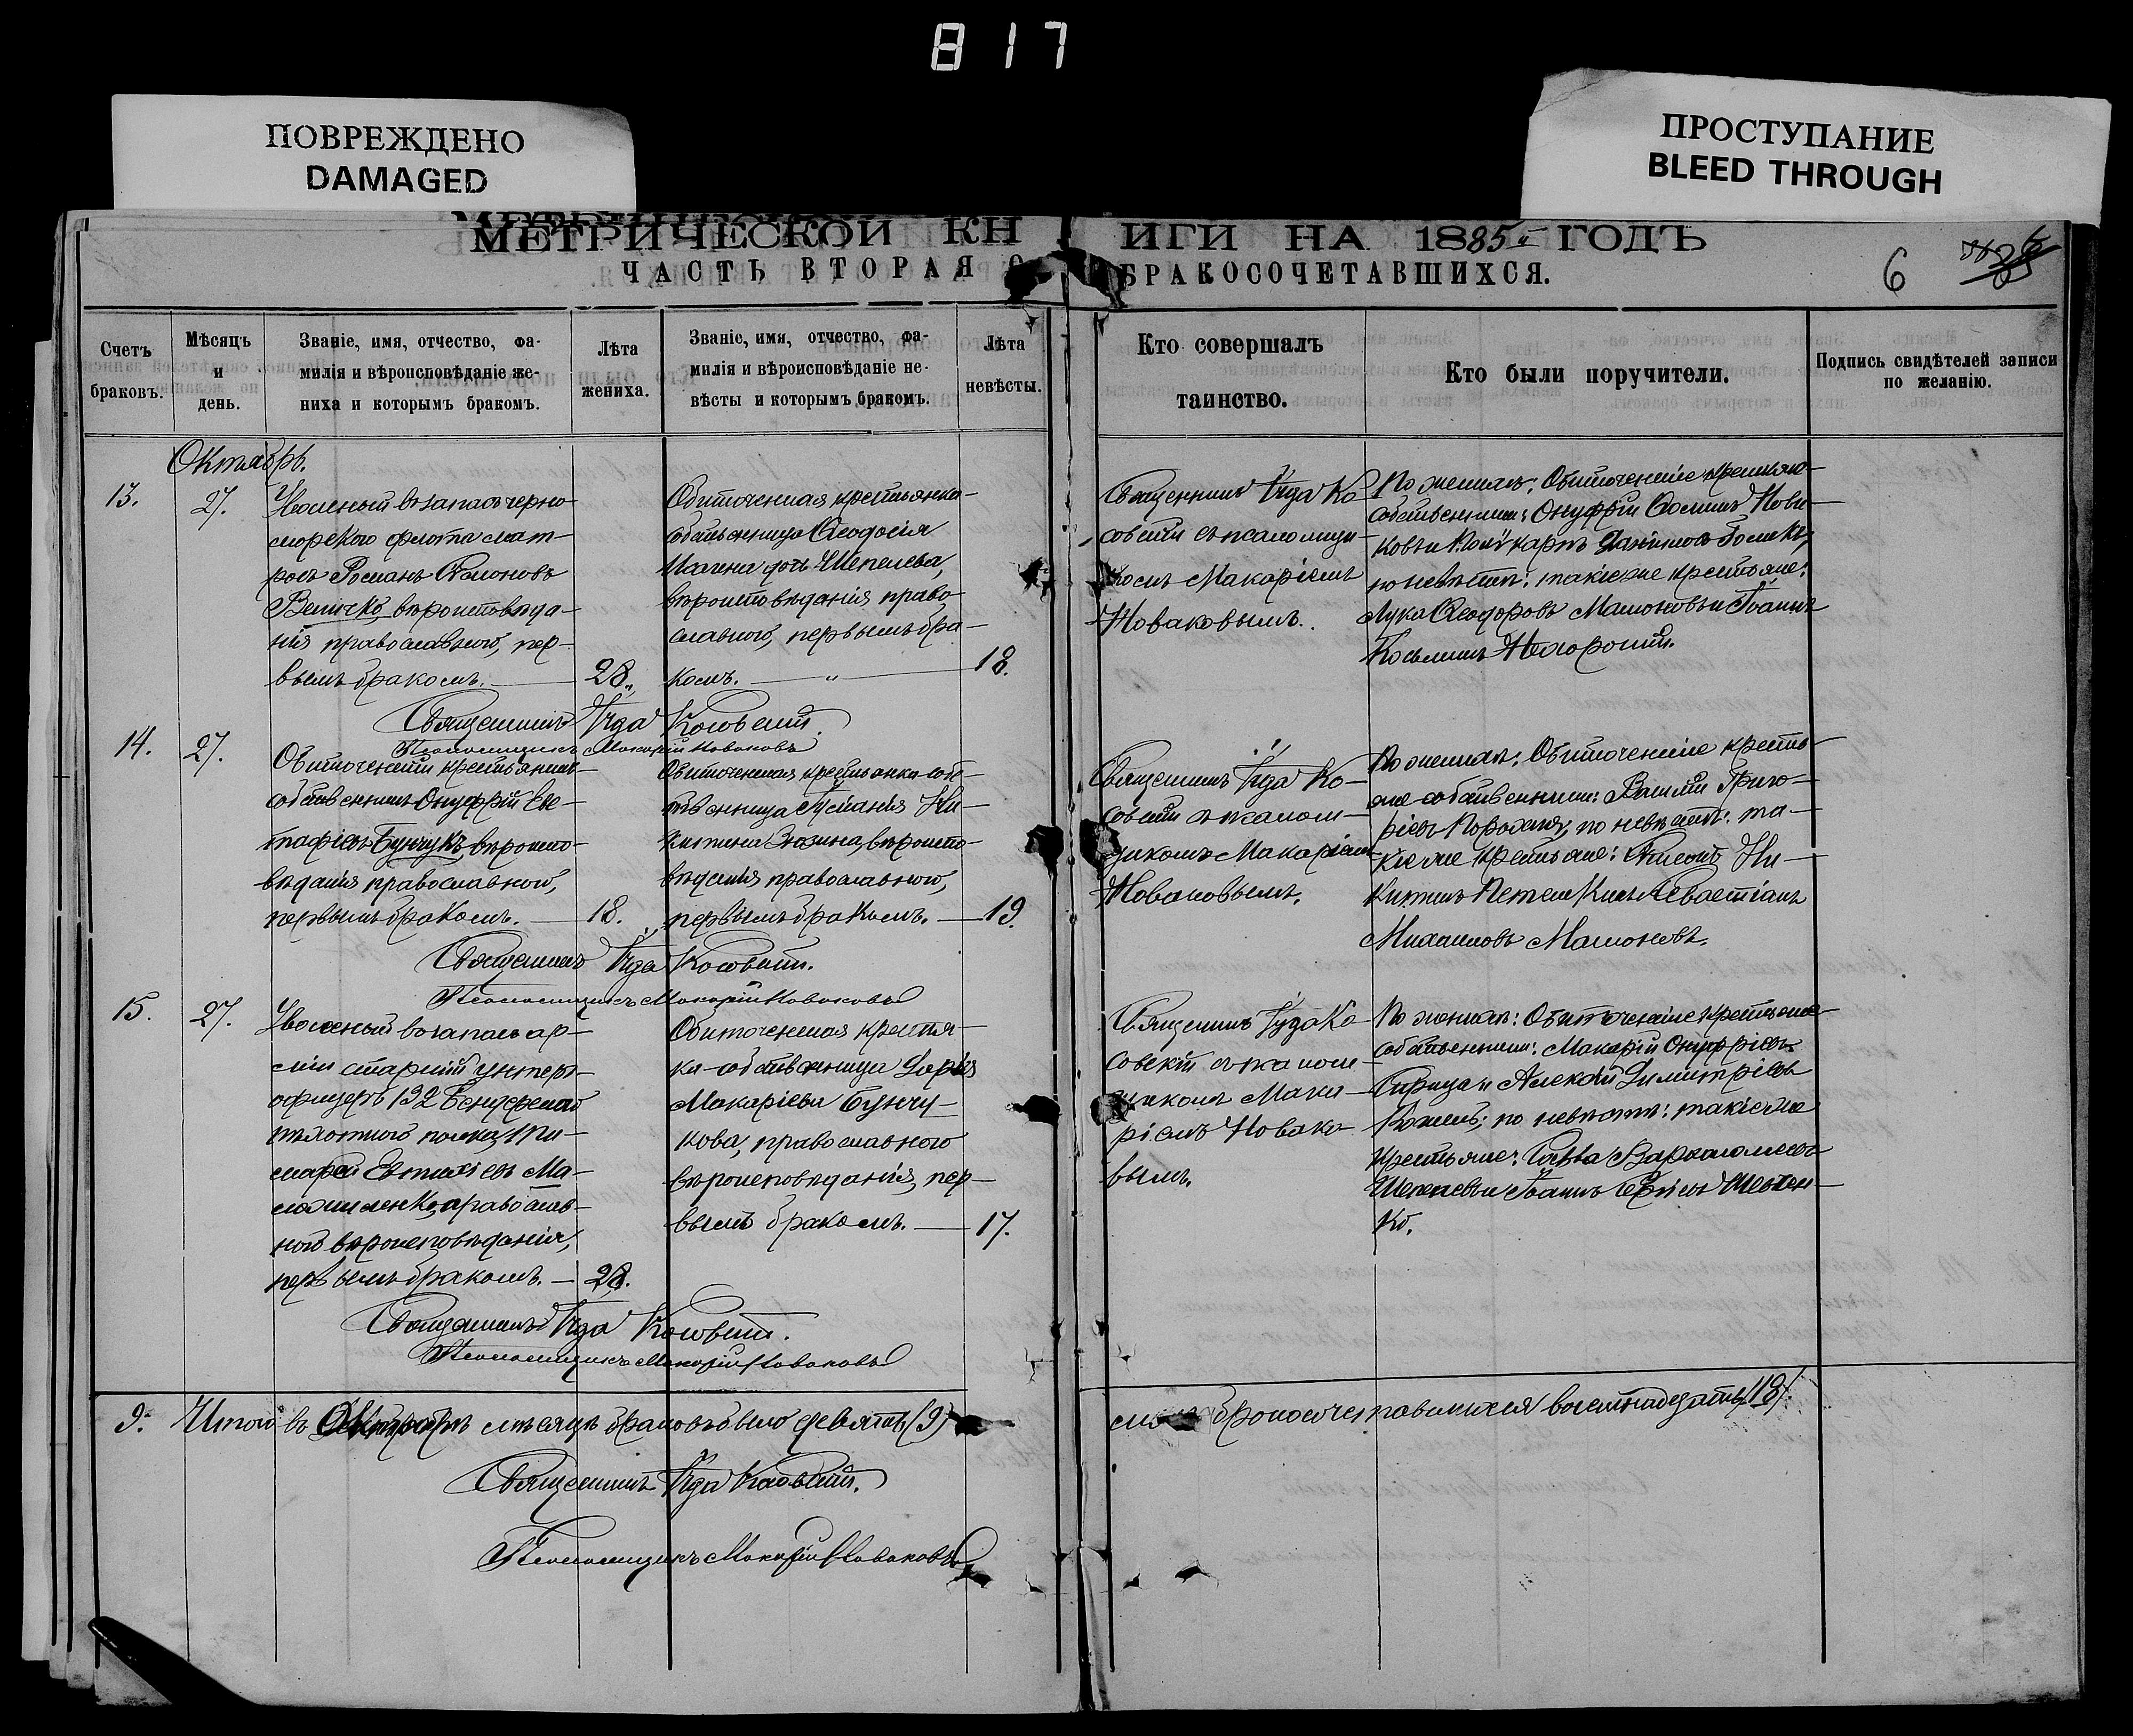 817
ПОВРЕЖДЕНО
DAMAGED
ПРОСТУПАНИЕ
BLEED THROUGH
МЕТРИЧЕСКОЙ КНИГИ НА 1885 ГОДЪ
ЧАСТЬ ВТОРАЯ О БРАКОСОЧЕТАВШИХСЯ.
6
Счетъ
браковъ.
Мѣсяцъ
и
день.
Званіе, имя, отчество, фа-
милія и вѣроисповѣданіе же-
ниха и которымъ бракомъ.
Лѣта
жениха.
Званіе, имя, отчество, фа-
милія и вѣроисповѣданіе не-
вѣсты и которымъ бракомъ.
Лѣта
невѣсты.
Кто совершалъ
таинство.
Кто были поручители.
Подпись свидѣтелей записи
по желанію.
Октябрь.
13.
27.
Уволеный въ запасъ черно-
морского флота мат-
росъ Романъ
Величко, вѣроисповѣда-
нія православного, пер-
вымъ бракомъ.
28.
Обиточенская крестьянка-
собственница Ѳеодосія
дочь Шепелева,
вѣроисповѣданія право-
славного, первымъ бра-
комъ.
18.
Священникъ Іуда Ко-
совскій съ псаломщи-
комъ Макаріемъ
Новаковымъ.
По женихѣ: Обиточенскіе крестьяне-
собственники: Онуфрій Нови-
ковъ и Поликарпъ
по невѣстѣ: такіе же крестьяне:
Лука Ѳеодоровъ Мамоновъ и Іоаннъ
Косьминъ
Священникъ Іуда Косовскій.
Псаломщикъ Макарій Новаковъ
14.
27.
Обиточенскій крестьянинъ-
собственникъ Онуфрій Ев-
тафіевъ Бунчукъ, вѣроиспо-
вѣданія православного,
первымъ бракомъ.
18.
Обиточенская крестьянка-собс-
твенница Іуліанія Ни-
китина Зюзина, вѣроиспо-
вѣданія православного,
первымъ бракомъ.
19.
Священникъ Іуда Ко-
совскій съ псаломщи-
комъ Макаріемъ
Новаковымъ.
По женихѣ: Обиточенскіе крестья-
не-собственники: Василій Григо-
ріевъ по невѣстѣ: та-
кіе же крестьяне: Ни-
китинъ и Севастіанъ
Михаиловъ Мамоновъ.
Священникъ Іуда Косовскій.
Псаломщикъ Макарій Новаковъ
15.
27.
Уволеный въ запасъ ар-
міи старшій унтеръ-
офицеръ 132 Бендерскаго
пѣхотного полка, Ти-
мофей Евтихіевъ Ма-
православ-
ного вѣроисповѣданія,
первымъ бракомъ.
28.
Обиточенская крестьян-
ка-собственница Дарія
Макаріева Бунчу-
кова, православного
вѣроисповѣданія, пер-
вымъ бракомъ.
17.
Священникъ Іуда Ко-
совскій съ псалом-
щикомъ Мака-
ріемъ Новако-
вымъ.
По женихѣ: Обиточенскіе крестьяне-
собственники: Макарій Онуфріевъ
и Алексій Димитріевъ
по невѣстѣ: такіе же
крестьяне: Савва Варѳоломеевъ
Шепелевъ и Іоаннъ Шевчен-
ко.
Священникъ Іуда Косовскій.
Псаломщикъ Макарій Новаковъ
9.
Итого въ Октябрѣ мѣсяцѣ браковъ было девять (9)
бракосочетавшихся восемнадцать /18/.
Священникъ Іуда Косовскій.
Псаломщикъ Макарій Новаковъ